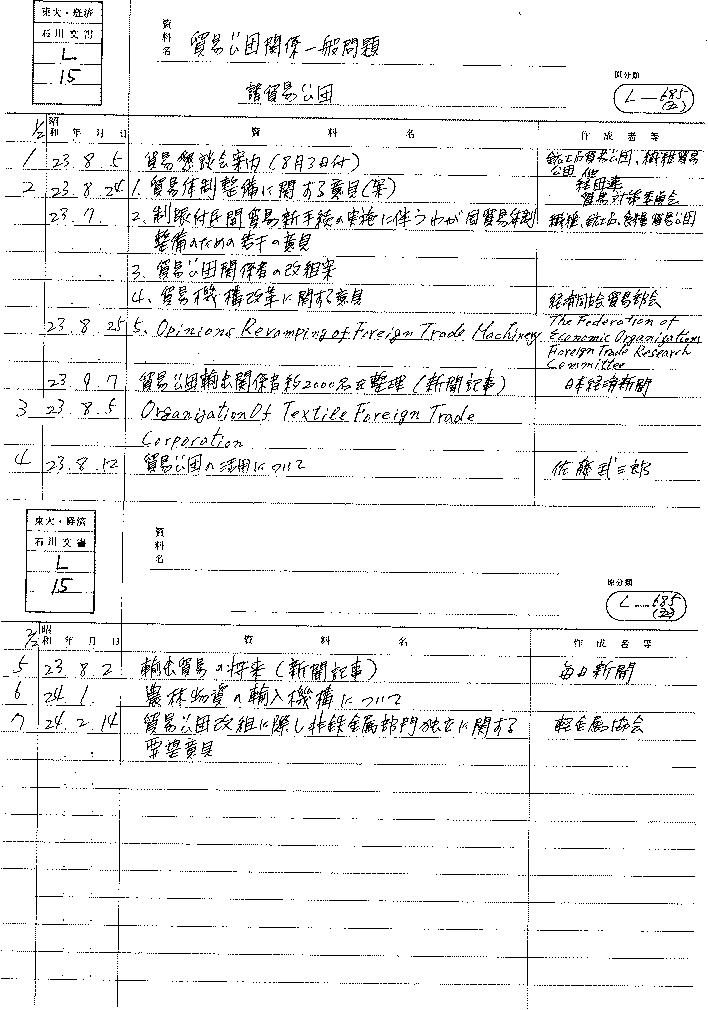 東大・経済
石川文書
L
15
資料名 貿易公団関係一般問題
諸貿易公団
原分類
L—685
(2)
1/2 昭和 年 月 日 資 料 名 作成者等
1 23. 8. 5 貿易懇談会案内(8月3日付) 鉱工品貿易公団、繊維貿易
公団 他
2 23. 8. 24 1. 貿易体制整備に関する意見(案) 経団連
貿易対策委員会
23. 7. 2. 制限付民間貿易新手続の実施に伴うわが国貿易体制 繊維、鉱工品、食糧貿易公団
整備のための若干の意見
3. 貿易公団関係者の改組案
4. 貿易機構改革に関する意見 経済同友会貿易部会
23. 8. 25 5. Opinions Revamping of Foreign Trade Machinery The Federation of
Economic Organization
Foreign Trade Research
Committee
23 9. 7 貿易公団輸出関係者約2000名を整理(新聞記事) 日本経済新聞
3 23. 8. 5 Organization Of Textile Foreign Trade
Corporation
4 23. 8. 12 貿易公団の活用について 佐藤武三郎
東大・経済
石川文書
L
15
資料名
原分類
L—685
(2)
2/2 昭和 年 月 日 資 料 名 作成者等
5 23 8 2 輸出貿易の将来(新聞記事) 毎日新聞
6 24 1. 農林物資の輸入機構について
7 24. 2. 14 貿易公団改組に際し非鉄金属部門独立に関する 軽金属協会
要望意見